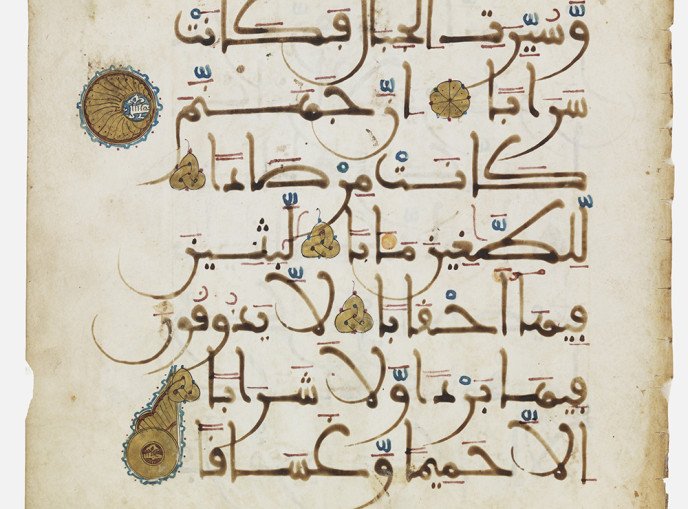 وَّسُيِّرَتِ الْجِبَالُ فَكَانَتْ
سَرَابًا إِنَّ جَهَنَّمَ
كَانَتْ مِرْصَادًا
لِّلطَّٰغِينَ مَـَٔابًا لَّٰبِثِينَ
فِيهَآ أَحْقَابًا لَا يَذُوقُونَ
فِيهَا بَرْدًا وَّلَا شَرَابًا
إِلَّا حَمِيمًا وَّغَسَاقًا